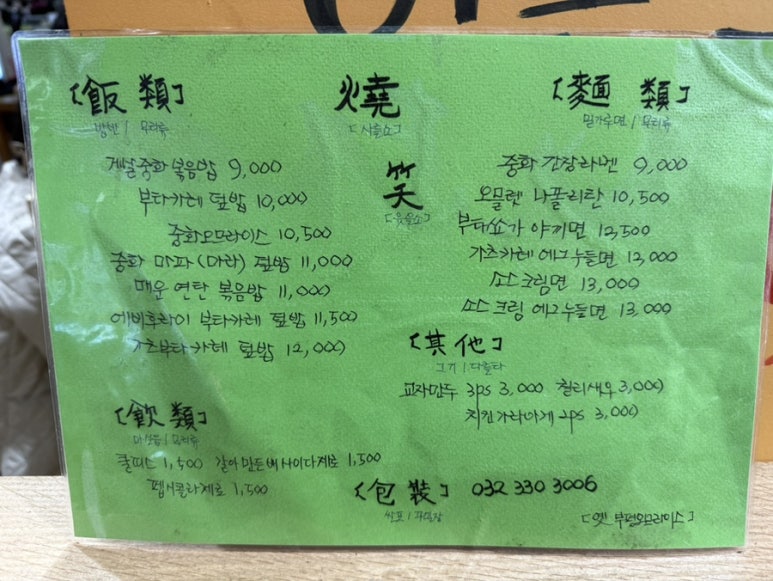 [飯類]
밥반 / 무리류
게살중화볶음밥 9,000
부타카레 덮밥 10,000
중화오므라이스 10,500
중화 마파(마라) 덮밥 11,000
매운 연탄 볶음밥 11,000
에비후라이 부타카레 덮밥 11,500
가츠부타카레 덮밥 12,000
[飲類]
마실음 / 무리류
쿨피스 1,500 갈아만든배사이다제로 1,500
펩시콜라제로 1,500
燒
[사를소]
笑
[웃을소]
[麵類]
밀가루면 / 무리류
중화 간장라멘 9,000
오믈렛 나폴리탄 10,500
부타쇼가 야끼면 12,500
가츠카레 에그누들면 12,000
소스크림면 13,000
소스크림 에그누들면 13,000
[其他]
그기 / 다를타
교자만두 3ps 3,000 칠리새우 3,000
치킨가라아게 2ps 3,000
[包裝]
쌀포 / 꾸밀장
032 330 3006
[옛 부평오므라이스]